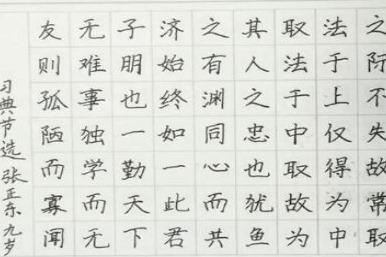 之际不失故常取
法于上仅得为中
取法于中取故为
其人之忠也犹鱼
之有渊同心而共
济始终如一此君
子朋也一勤天下
无难事独学而无
友则孤陋而寡闻
习典节选 张正东 九岁